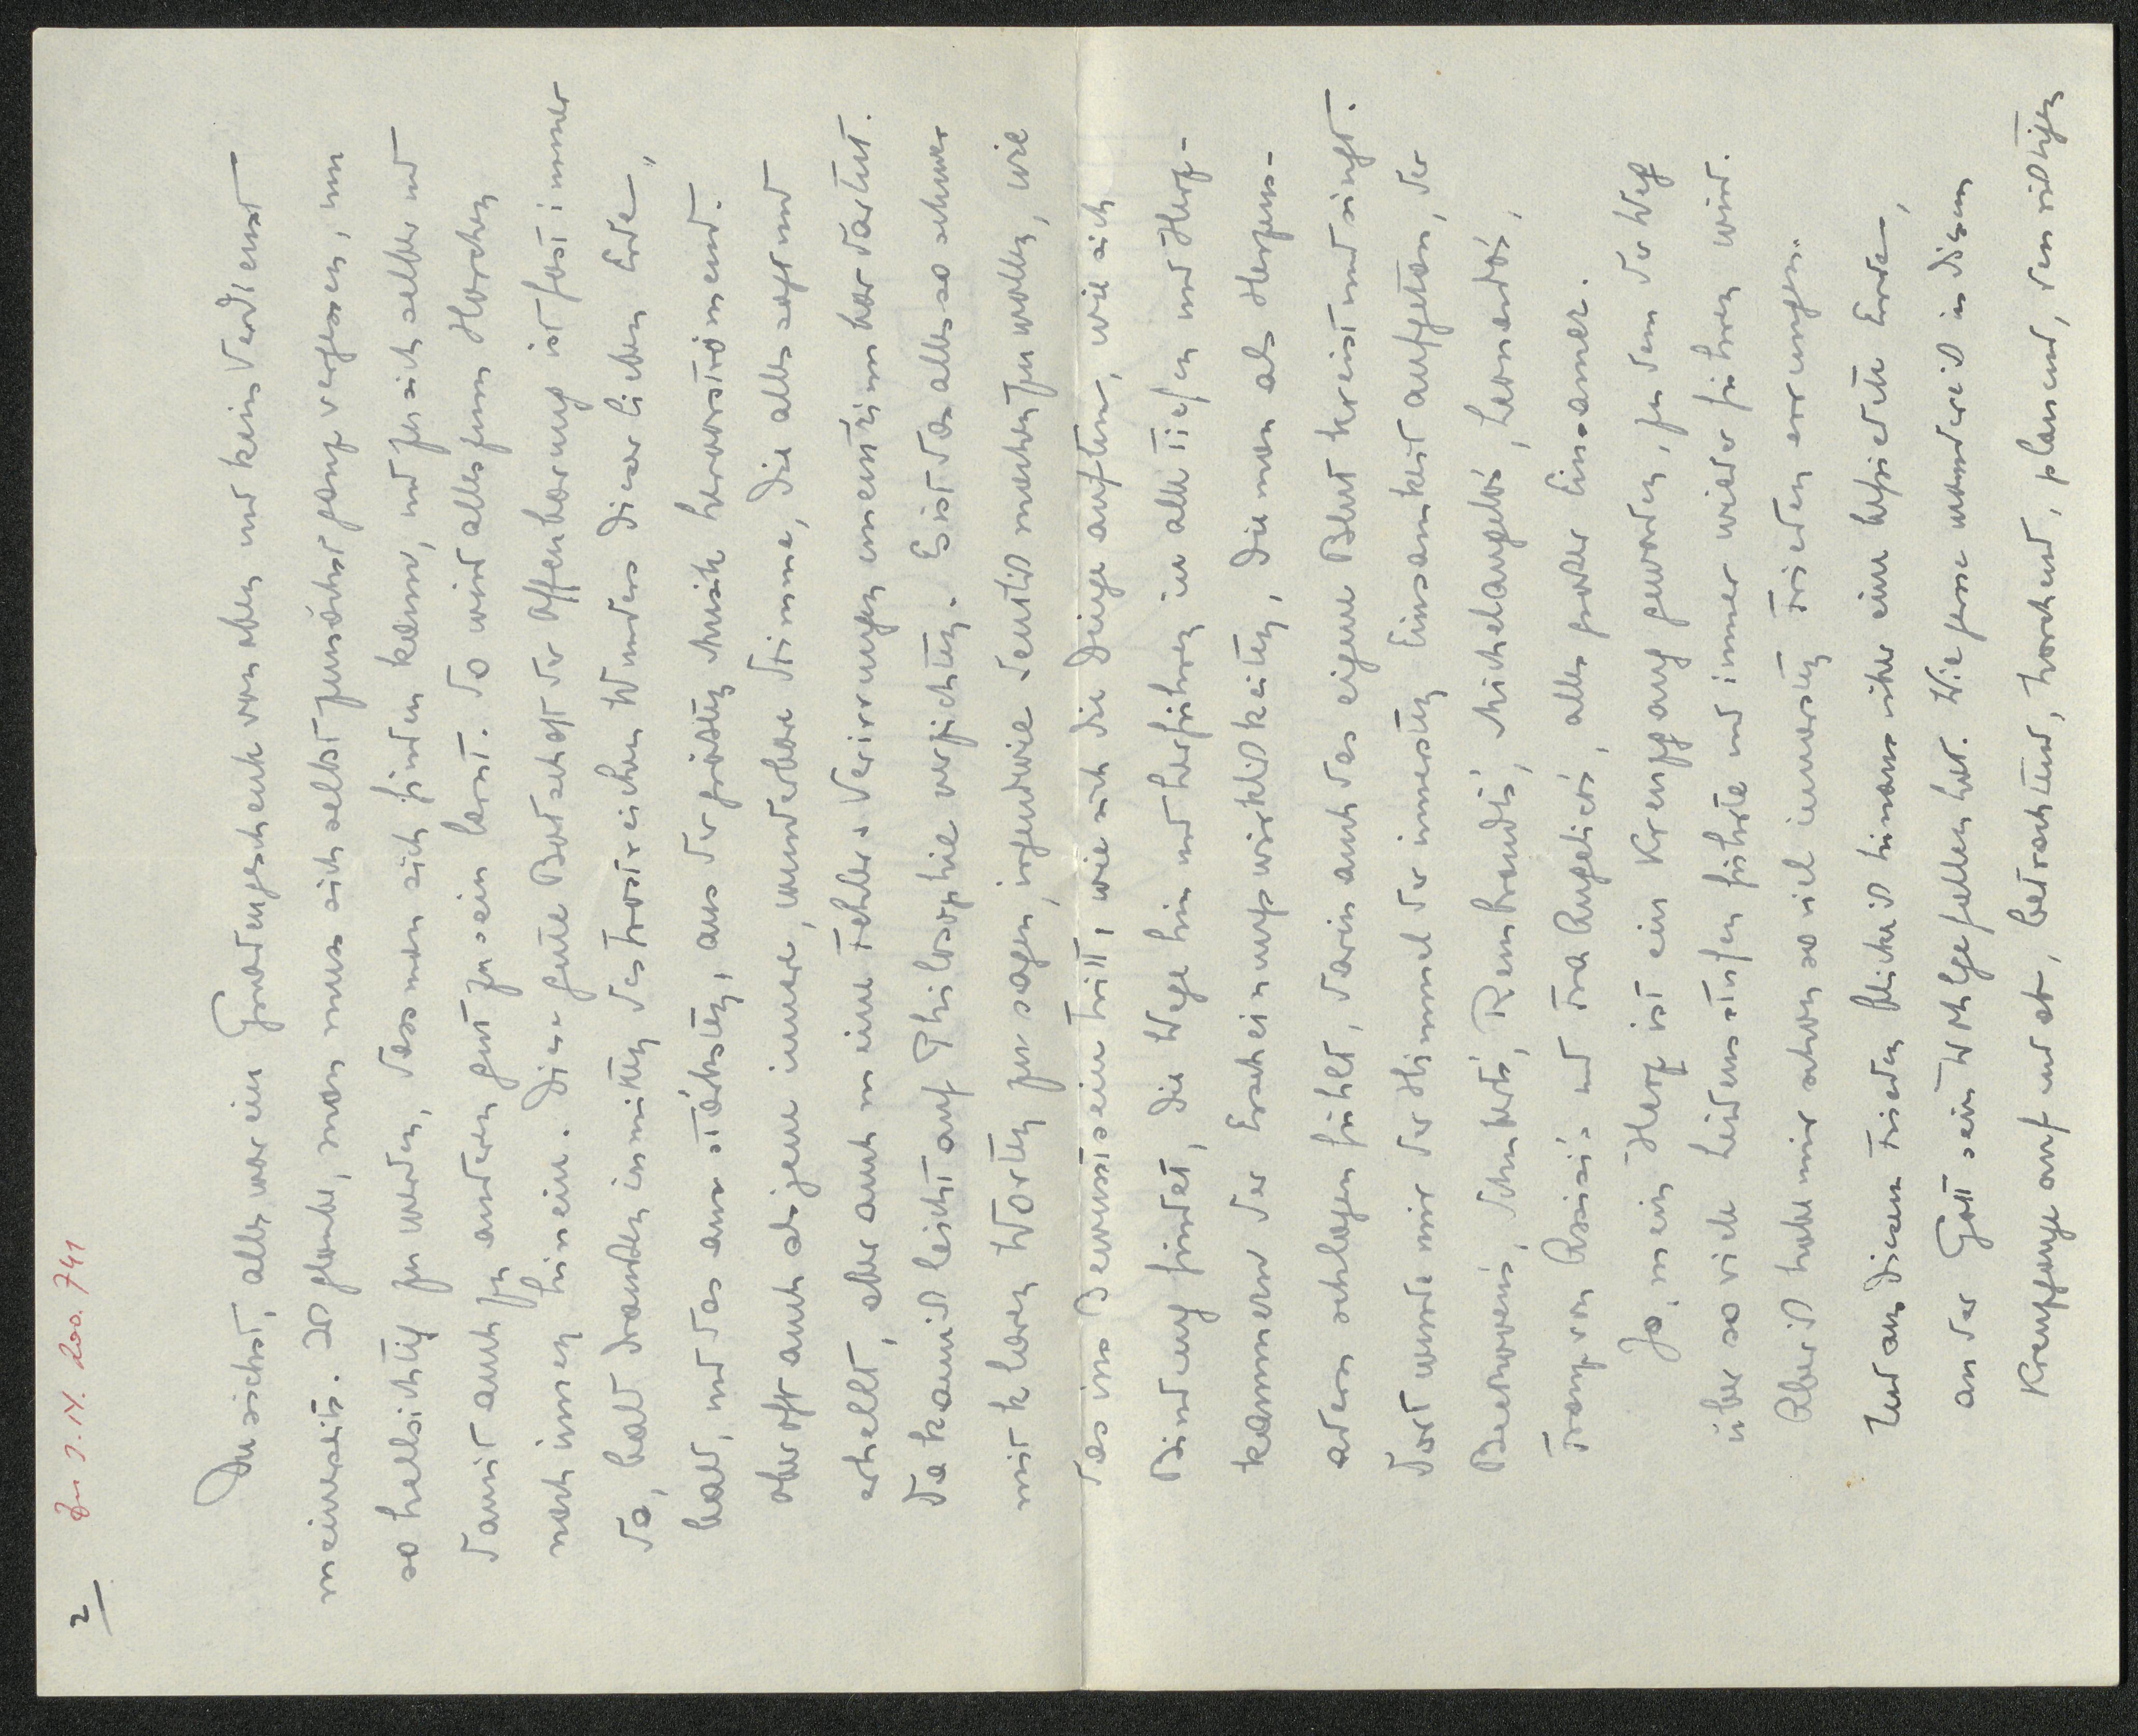 2
Zu I. N. 200.741
Du siehst, alles war ein Gnadengeschenk von oben und kein Verdienst
meinerseits. Ich glaube, man muss sich selbst zunächst ganz vergessen, um
so hellsichtig zu werden, dass man sich finden kann, und zu sich selber und
damit auch zu anderen gut zu sein lernt. So wird alles zum Horchen
nach innen hinein. Diese gute Botschaft der Offenbarung ist fast immer
da, bald draußen inmitten des trostreichen Wunders dieser lieben Erde,
bald, und das am stärksten, aus der größten Musik herausströmend.
Aber oft auch als jene innere, wunderbare Stimme, die alles sagt und
erhellt, aber auch meine Fehler & Verirrungen unentrinnbar dartut.
Da kann ich leicht auf Philosophie verzichten. Es ist das alles so schwer
mit klaren Worten zu sagen, irgendwie deutlich machen zu wollen, wie
das ins Bewusstsein tritt, wie sich die Dinge auftun, wie sich
Bindung findet, die Wege hin und herführen in alle Tiefen und Herz-
kammern der Erscheinungswirklichkeiten, die man als Herzens-
adern schlagen fühlt, darin auch das eigene Blut kreist und singt.
Dort wurde mir der Himmel der innersten Einsamkeit aufgetan, der
Beethovens, Schuberts, Rembrandts, Michelangelos, Leonardos,
Franz von Assisi's und Fra Angelicos, aller großer Einsamer.
Ja, mein Herz ist ein Kreuzgang geworden, zu dem der Weg
über so viele Leidensstufen führte und immer wieder führen wird.
Aber ich habe mir schon so viel innersten Frieden errungen.
Und aus diesem Frieden blicke ich hinaus über eine befriedete Erde,
an der Gott sein Wohlgefallen hat. Wie gerne wandere ich in diesem
Kreuzgange auf und ab, betrachtend, horchend, planend, den richtigen